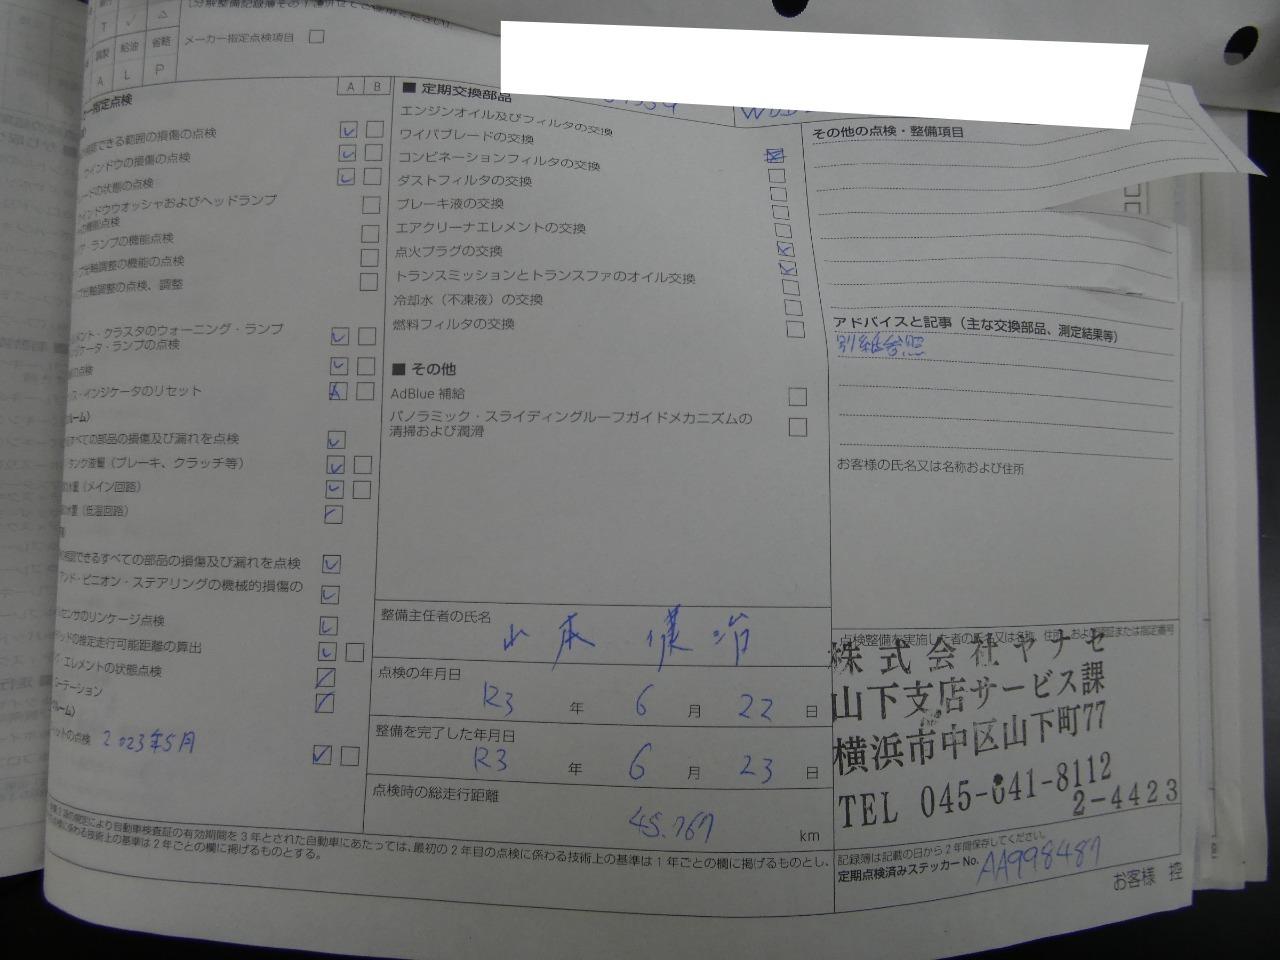 T ✓ △
調製 給油 省略
A L P
メーカー指定点検項目
指定点検
A B
できる範囲の損傷の点検
ウインドウの損傷の点検
の状態の点検
ウインドウウオッシャおよびヘッドランプ
の機能点検
ランプの機能点検
光軸調整の機能の点検
光軸調整の点検、調整
メント・クラスタのウォーニング・ランプ
ケータ・ランプの点検
の点検
ス・インジケータのリセット
ルーム)
すべての部品の損傷及び漏れを点検
タンク液量（ブレーキ、クラッチ等）
水量（メイン回路）
水量（低温回路）
できるすべての部品の損傷及び漏れを点検
アンド・ピニオン・ステアリングの機械的損傷の
センサのリンケージ点検
ッドの推定走行可能距離の算出
エレメントの状態点検
ーテーション
ルーム)
ットの点検 2023年5月
■ 定期交換部品
エンジンオイル及びフィルタの交換
ワイパブレードの交換
コンビネーションフィルタの交換
ダストフィルタの交換
ブレーキ液の交換
エアクリーナエレメントの交換
点火プラグの交換
トランスミッションとトランスファのオイル交換
冷却水（不凍液）の交換
燃料フィルタの交換
■ その他
AdBlue 補給
パノラミック・スライディングルーフガイドメカニズムの
清掃および潤滑
整備主任者の氏名
山本
点検の年月日
R3 年 6 月 22 日
整備を完了した年月日
R3 年 6 月 23 日
点検時の総走行距離
45.767 km
その他の点検・整備項目
アドバイスと記事（主な交換部品、測定結果等）
別紙参照
お客様の氏名又は名称および住所
点検整備を実施した者の氏名又は名称、住所、および認証または指定番号
株式会社ヤナセ
山下支店サービス課
横浜市中区山下町77
TEL 045-641-8112
2-4423
記録簿は記載の日から2年間保存してください。
定期点検済みステッカーNo. AA998487
により自動車検査証の有効期間を3年とされた自動車にあたっては、最初の2年目の点検に係わる技術上の基準は1年ごとの欄に掲げるものとし、
に係わる技術上の基準は2年ごとの欄に掲げるものとする。
お客様 控